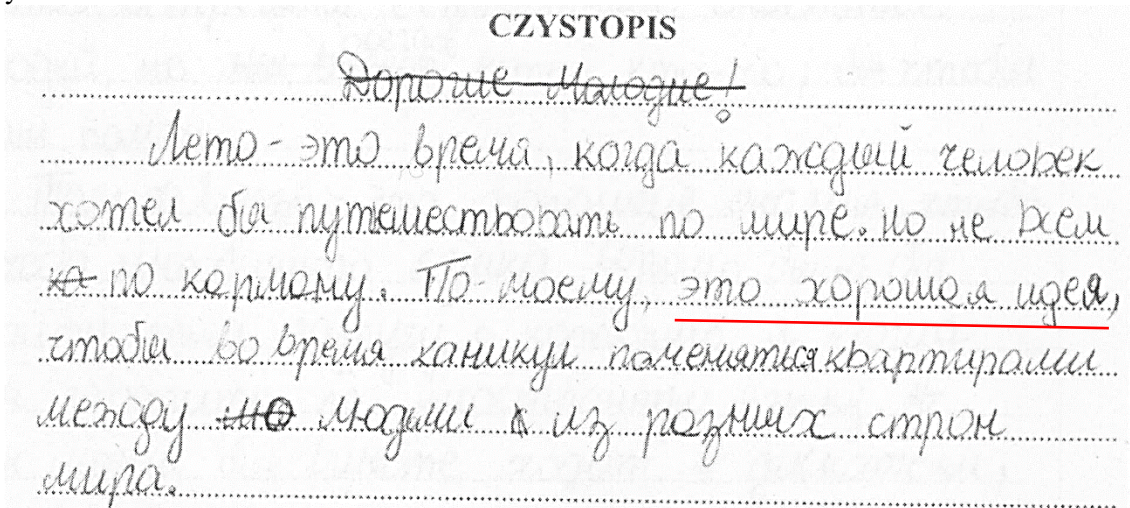 CZYSTOPIS
Дорогие Молодые!
Лето - это время, когда каждый человек
хотел бы путешествовать по мире. Но не всем
по карману. По-моему, это хорошая идея,
чтобы во время каникул поменяться квартирами
между людьми из разных стран
мира.